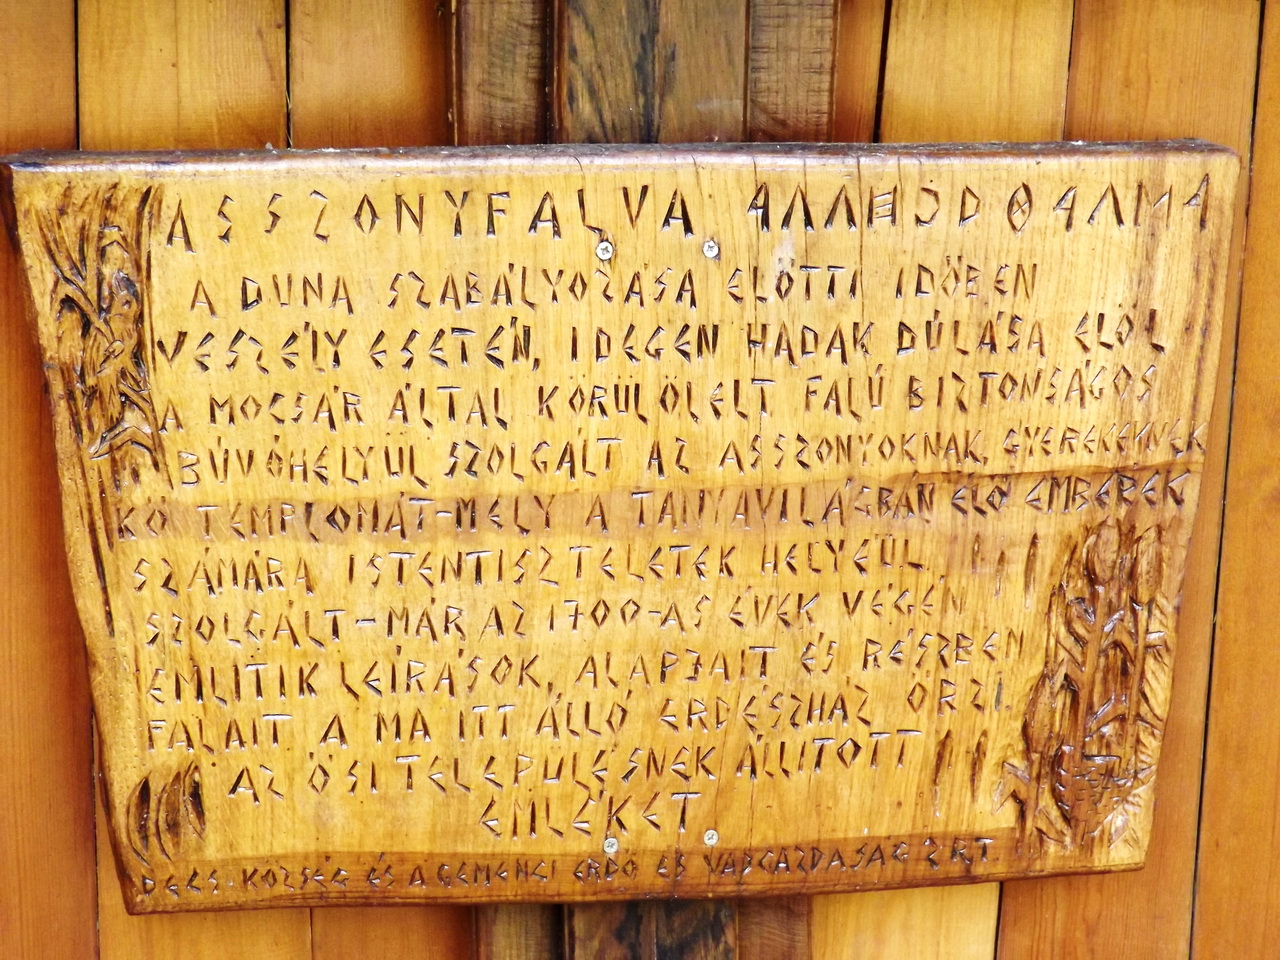 ASSZONYFALVA
A DUNA SZABÁLYOZÁSA ELŐTTI IDŐBEN
VESZÉLY ESETÉN, IDEGEN HADAK DÚLÁSA ELŐL
A MOCSÁR ÁLTAL KÖRÜLÖLELT FALÚ BIZTONSÁGOS
BÚVÓHELYÜL SZOLGÁLT AZ ASSZONYOKNAK, GYEREKEKNEK
KŐ TEMPLOMÁT-MELY A TANYAVILÁGBAN ÉLŐ EMBEREK
SZÁMÁRA ISTENTISZTELETEK HELYÉÜL
SZOLGÁLT-MÁR AZ 1700-AS ÉVEK VÉGÉN
EMLITIK LEÍRÁSOK, ALAPJAIT ÉS RÉSZBEN
FALAIT A MA ITT ÁLLÓ ERDÉSZHÁZ ŐRZI.
AZ ŐSI TELEPÜLÉSNEK ÁLLITOTT
EMLÉKET
DECS KÖZSÉG ÉS A GEMENCI ERDŐ ÉS VADGAZDASÁG ZRT.